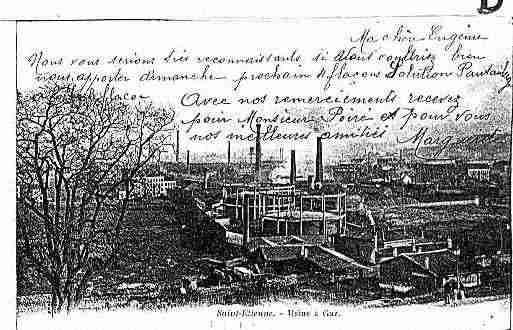 D
Ma chère Eugénie
Nous vous serions très reconnaissants si vous vouliez bien
nous apporter dimanche prochain 4 flacons Solution Pautauberge
Avec nos remerciements recevez
pour Monsieur Poiré et pour vous
nos meilleures amitiés
Saint-Etienne. - Usine à Gaz.